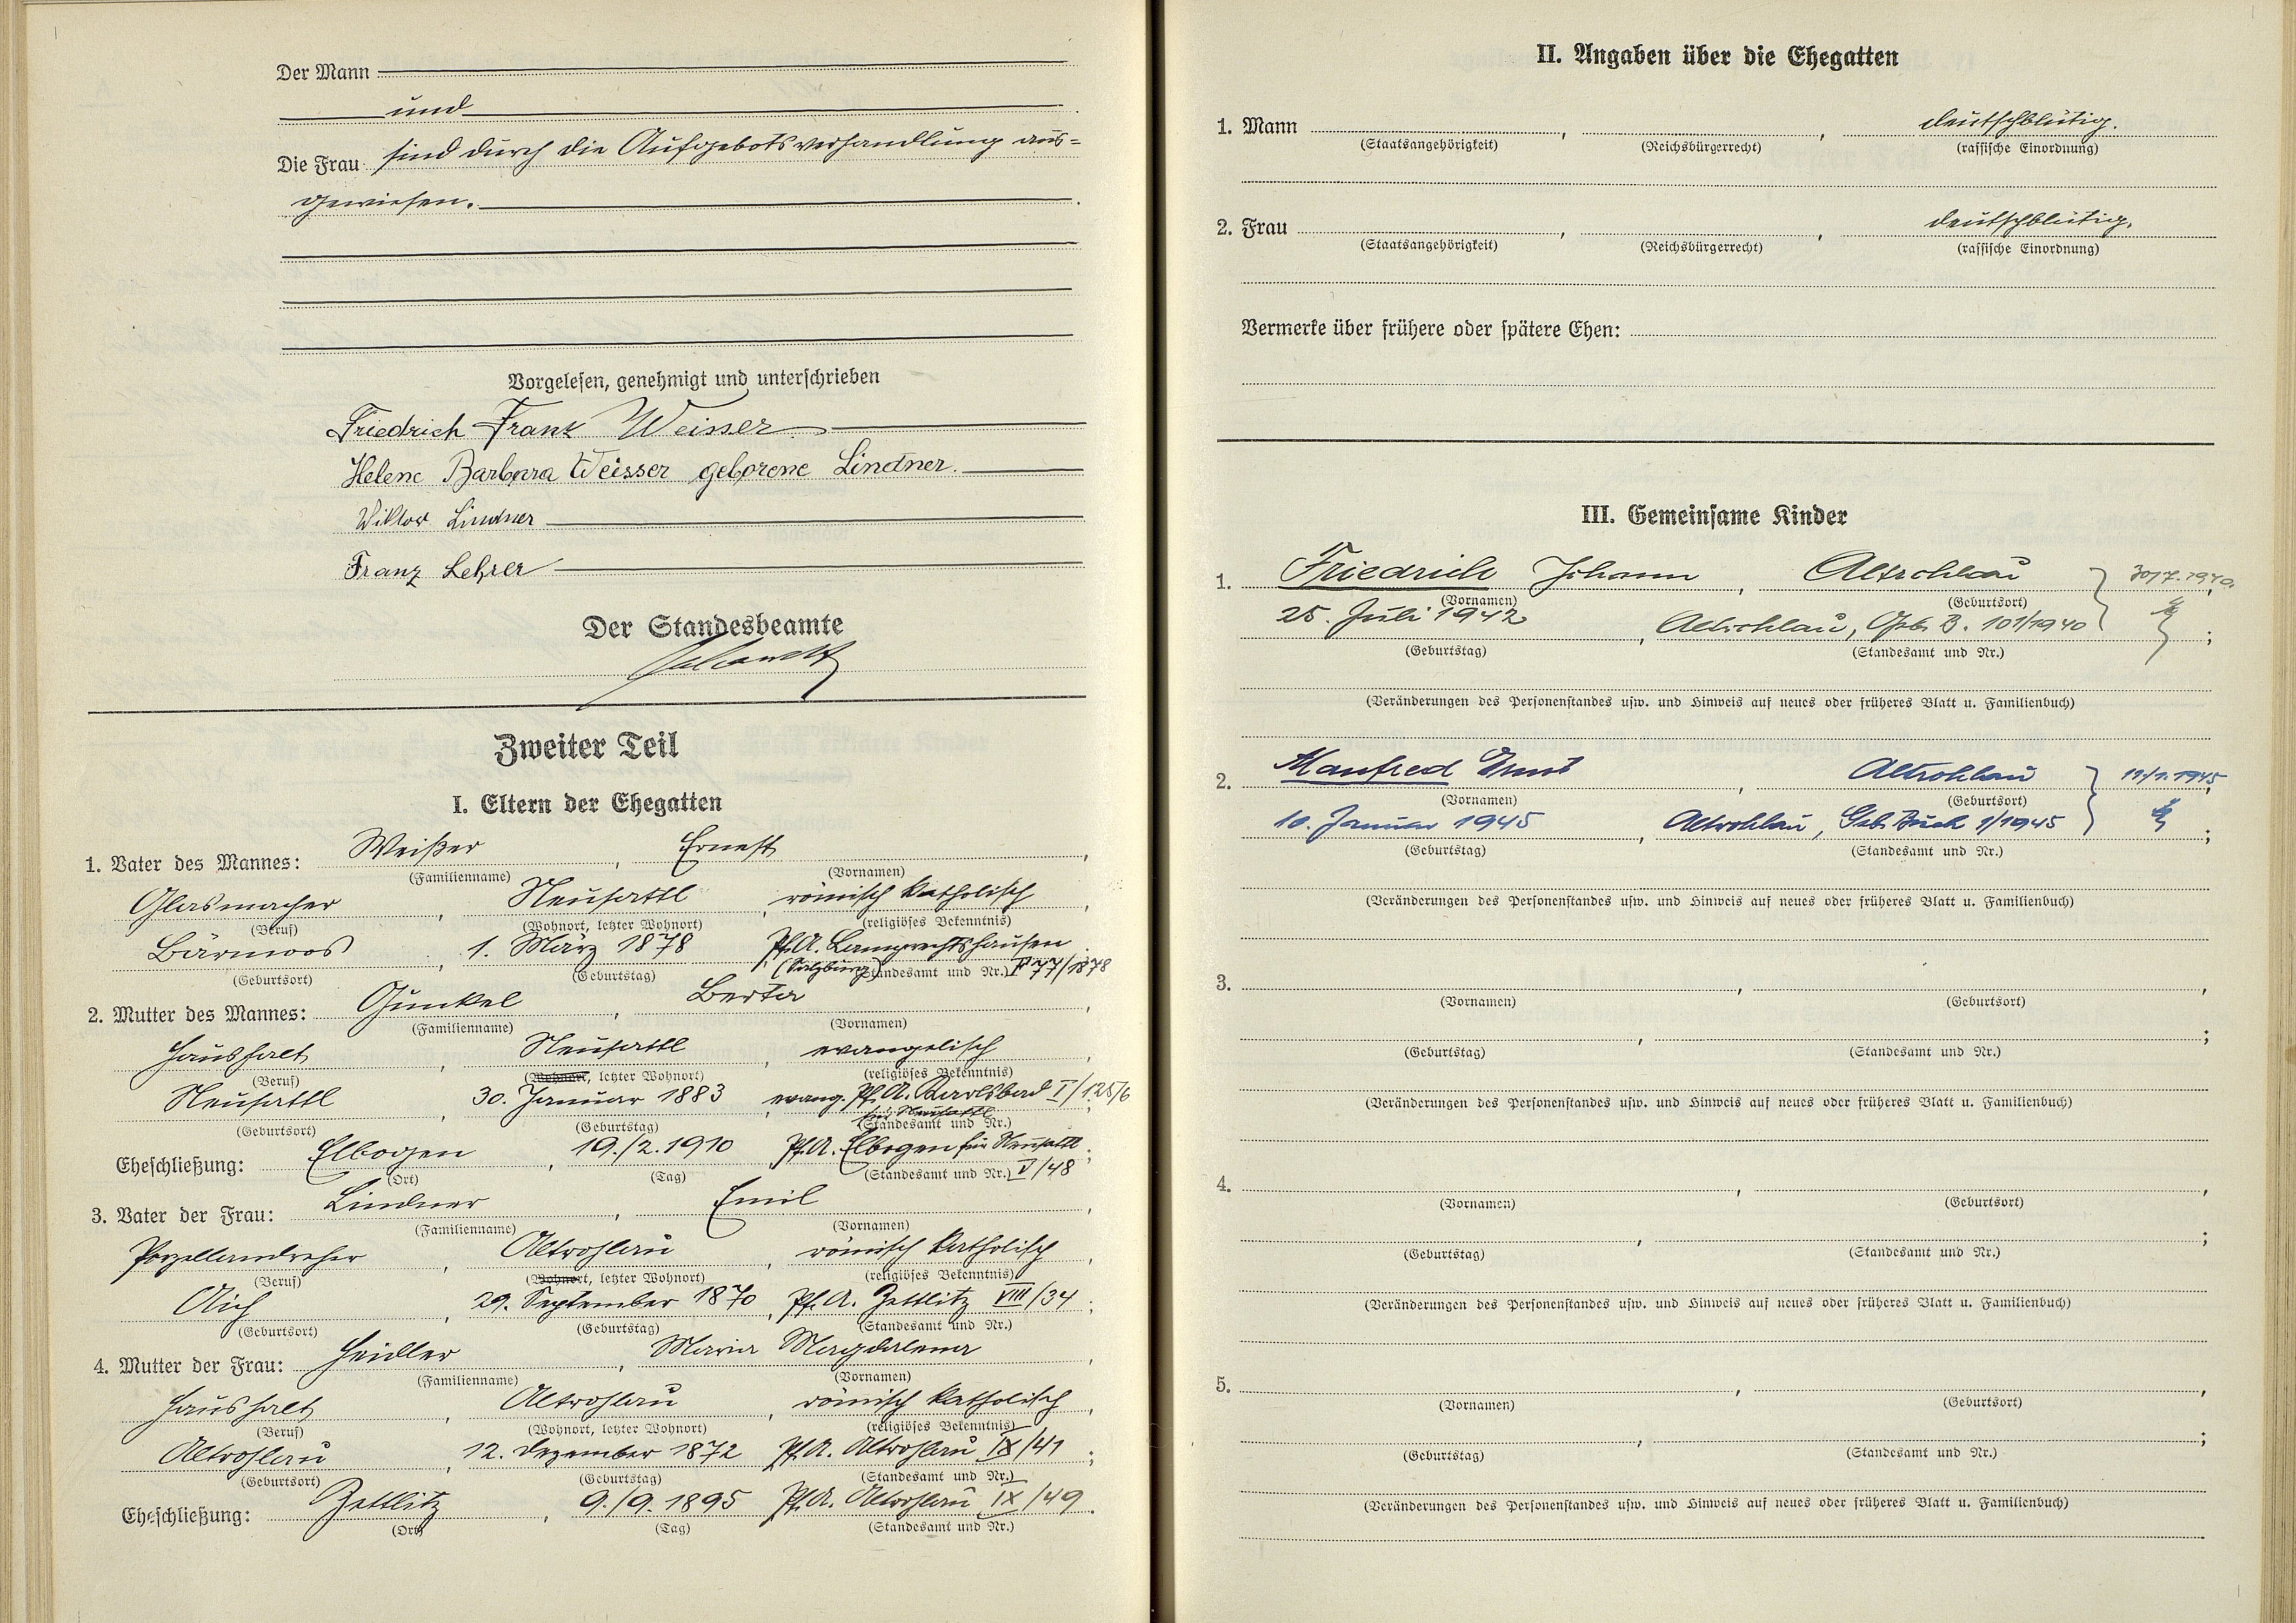 Der Mann
und
Die Frau sind durch die Aufgebotsverhandlung aus=
gewiesen.
Vorgelesen, genehmigt und unterschrieben
Friedrich Franz Weisser
Helene Barbara Weisser geborene Lindner.
Viktor Lindner
Franz Lehrer
Der Standesbeamte
Zweiter Teil
I. Eltern der Ehegatten
1. Vater des Mannes: Weißer, Ernest,
(Familienname) (Vornamen)
Glasmacher, Neusattl, römisch katholisch,
(Beruf) (Wohnort, letzter Wohnort) (religiöses Bekenntnis)
Bärmoos, 1. März 1878, Pf.A. Lamprechtshausen
(Geburtsort) (Geburtstag) (Salzburg) (Standesamt und Nr.) 77/1878
2. Mutter des Mannes: Gunkel, Berta,
(Familienname) (Vornamen)
Haushalt, Neusattl, evangelisch,
(Beruf) (Wohnort, letzter Wohnort) (religiöses Bekenntnis)
Neusattl, 30. Januar 1883, evang. Pf.A. Karlsbad I/125/6
für Neusattl
(Geburtsort) (Geburtstag) (Standesamt und Nr.)
Eheschließung: Elbogen, 19./2.1910 Pf.A. Elbogen für Neusattl;
(Ort) (Tag) (Standesamt und Nr.) V/48
3. Vater der Frau: Lindner, Emil,
(Familienname) (Vornamen)
Porzellandreher, Altrohlau, römisch katholisch,
(Beruf) (Wohnort, letzter Wohnort) (religiöses Bekenntnis)
Aich, 29. September 1870, Pf.A. Zettlitz VIII/34;
(Geburtsort) (Geburtstag) (Standesamt und Nr.)
4. Mutter der Frau: Heidler, Maria Magdalena,
(Familienname) (Vornamen)
Haushalt, Altrohlau, römisch katholisch,
(Beruf) (Wohnort, letzter Wohnort) (religiöses Bekenntnis)
Altrohlau, 12. Dezember 1872 Pf.A. Altrohlau IX/41;
(Geburtsort) (Geburtstag) (Standesamt und Nr.)
Eheschließung: Zettlitz, 9./9.1895 Pf.A. Altrohlau IX/49.
(Ort) (Tag) (Standesamt und Nr.)
II. Angaben über die Ehegatten
1. Mann , , deutschblütig.
(Staatsangehörigkeit) (Reichsbürgerrecht) (rassische Einordnung)
2. Frau , , deutschblütig.
(Staatsangehörigkeit) (Reichsbürgerrecht) (rassische Einordnung)
Vermerke über frühere oder spätere Ehen:
III. Gemeinsame Kinder
1. Friedrich Johann, Altrohlau 30/7.1940.
(Vornamen) (Geburtsort)
25. Juli 1942, Altrohlau, Geb. B. 101/1940;
(Geburtstag) (Standesamt und Nr.)
(Veränderungen des Personenstandes usw. und Hinweis auf neues oder früheres Blatt u. Familienbuch)
2. Manfred Ernst, Altrohlau 11/1.1945,
(Vornamen) (Geburtsort)
10. Januar 1945, Altrohlau, Geb. Buch 1/1945;
(Geburtstag) (Standesamt und Nr.)
(Veränderungen des Personenstandes usw. und Hinweis auf neues oder früheres Blatt u. Familienbuch)
3. , ,
(Vornamen) (Geburtsort)
, ;
(Geburtstag) (Standesamt und Nr.)
(Veränderungen des Personenstandes usw. und Hinweis auf neues oder früheres Blatt u. Familienbuch)
4. , ,
(Vornamen) (Geburtsort)
, ;
(Geburtstag) (Standesamt und Nr.)
(Veränderungen des Personenstandes usw. und Hinweis auf neues oder früheres Blatt u. Familienbuch)
5. , ,
(Vornamen) (Geburtsort)
, ;
(Geburtstag) (Standesamt und Nr.)
(Veränderungen des Personenstandes usw. und Hinweis auf neues oder früheres Blatt u. Familienbuch)